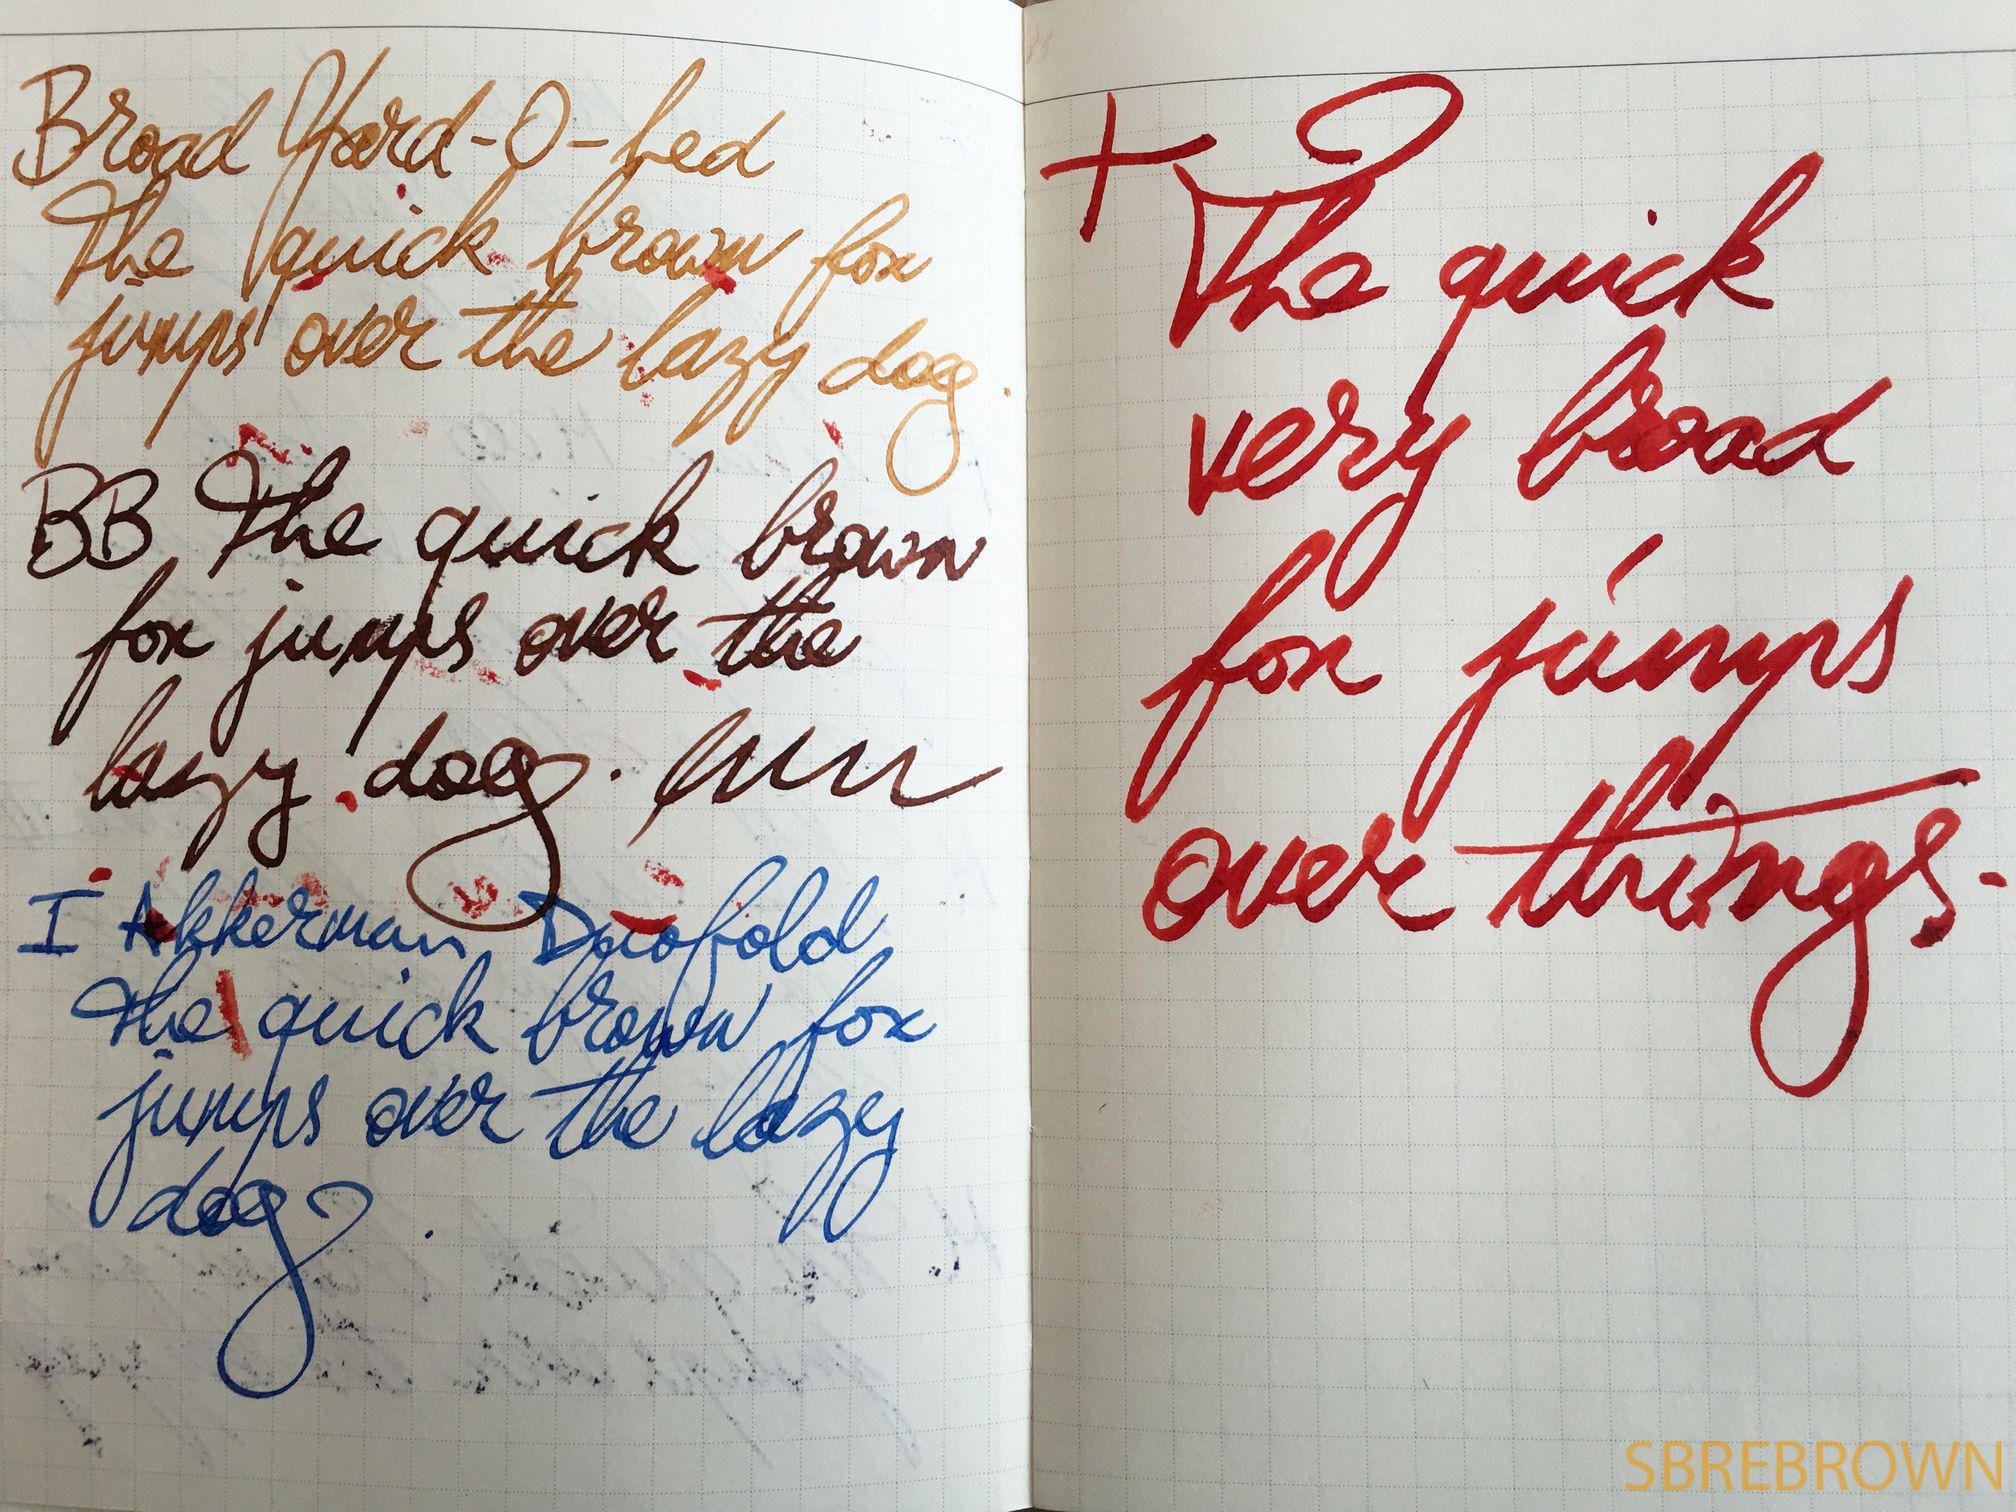 Broad Yard-O-Led
The quick brown fox
jumps over the lazy dog.
BB The quick brown
fox jumps over the
lazy dog.
I Akkerman Duofold
The quick brown fox
jumps over the lazy
dog.
+ The quick
very broad
fox jumps
over things.
SBREBROWN